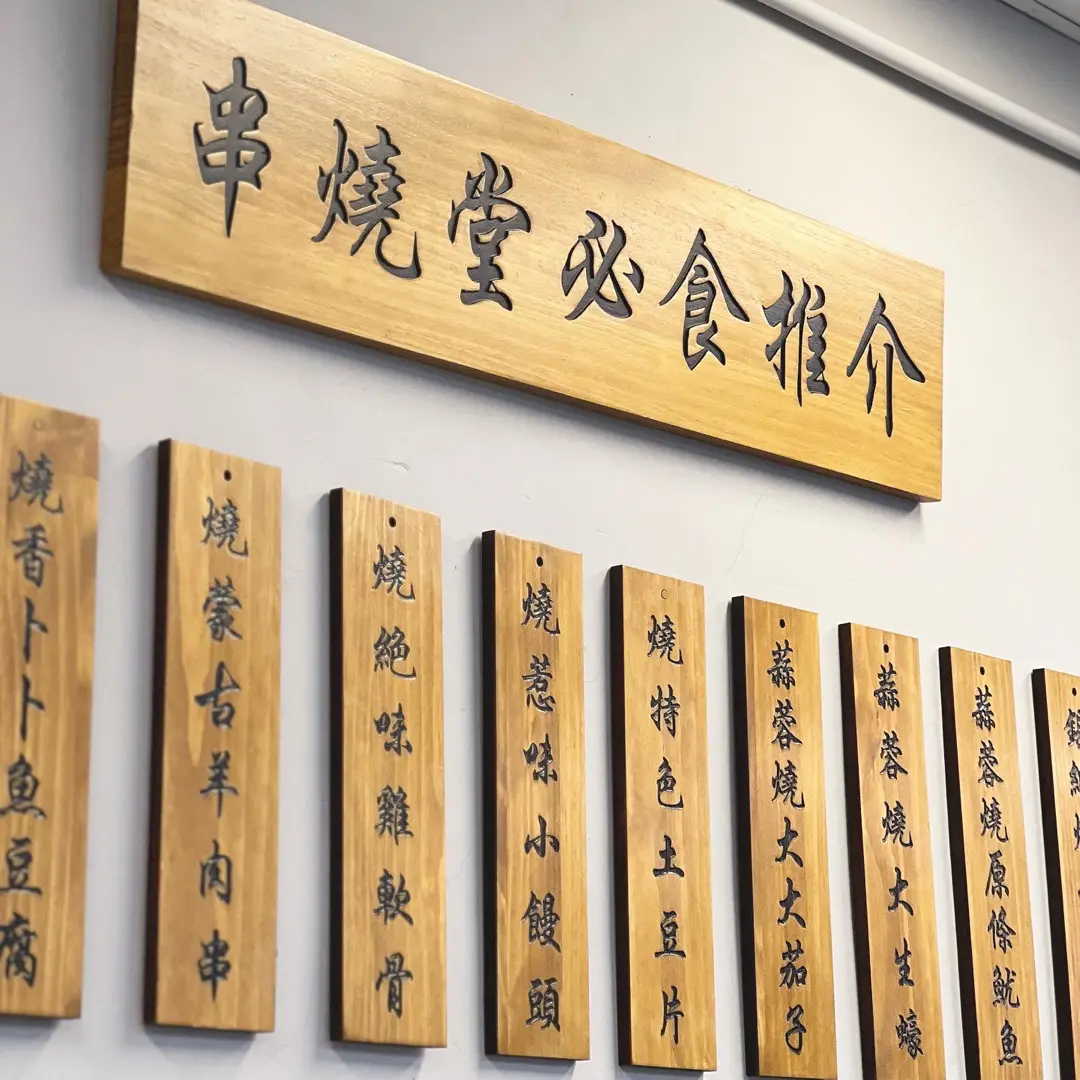 串燒堂必食推介
燒香卜卜魚豆腐
燒蒙古羊肉串
燒絕味雞軟骨
燒惹味小饅頭
燒特色土豆片
蒜蓉燒大大茄子
蒜蓉燒大生蠔
蒜蓉燒原條魷魚